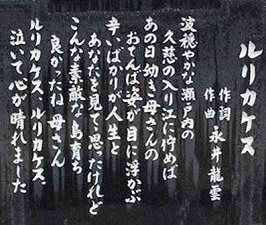 ルリカケス
作詞
作曲 永井龍雲
波穏やかな瀬戸内の
久慈の入り江に佇めば
あの日幼き母さんの
おてんば姿が目に浮かぶ
辛いばかりが人生と
あなたを見て思ったけれど
こんな素敵な島育ち
良かったね母さん
ルリカケス、ルリカケス、
泣いて心が晴れました